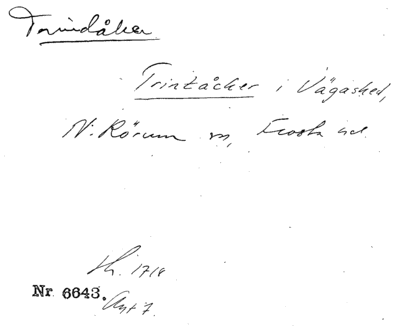 Trindåker
Trintåcker i Vägashed,
N. Rörum sn, Frosta hd.
Lh. 1718
Nr 6643.
Akt 7.